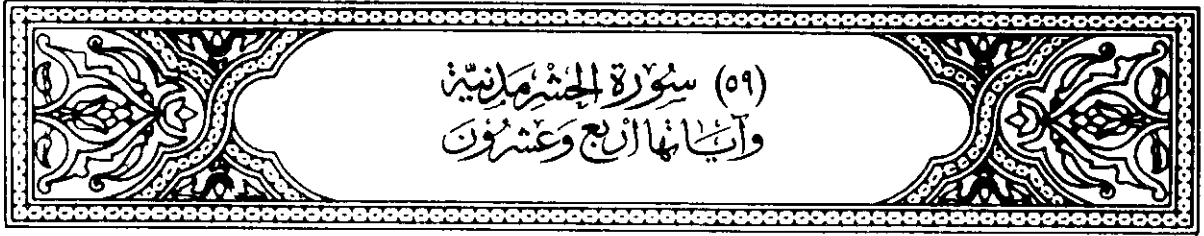 (٥٩) سُورَة الحَشْرِ مَدَنِيَّة
وَآيَاتهَا أَرْبَع وَعِشْرُونَ